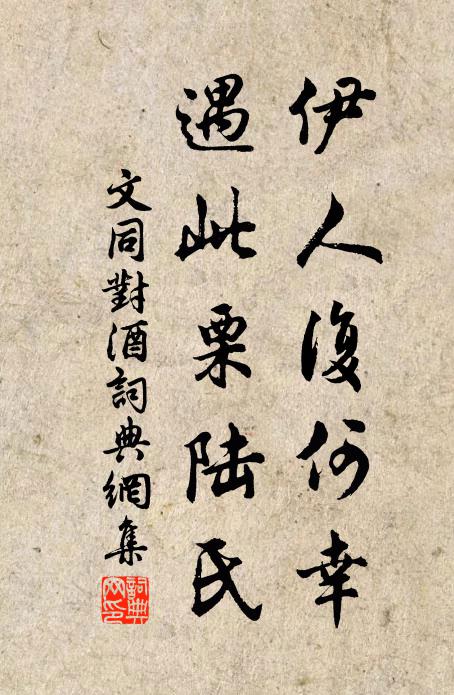 伊人復何幸
遇此栗陆氏
文同對酒詞典網集
詞典网印